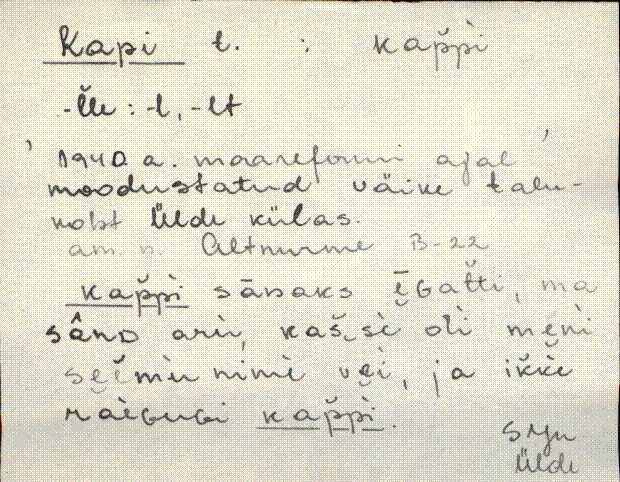 Kapi t. : kap̆pì
-lle : -l, -lt
' 1940. a. maareformi ajal '
moodustatud väike talu-
koht Ülde külas.
am. n. Altnurme B-22
kap̆pì sānaks ēGat̆ti, ma
sând ari, kas̆sè oli mèni
nimè vèi, ja ik̆kè
räèGuGi kap̆pì.
SJn
Ülde